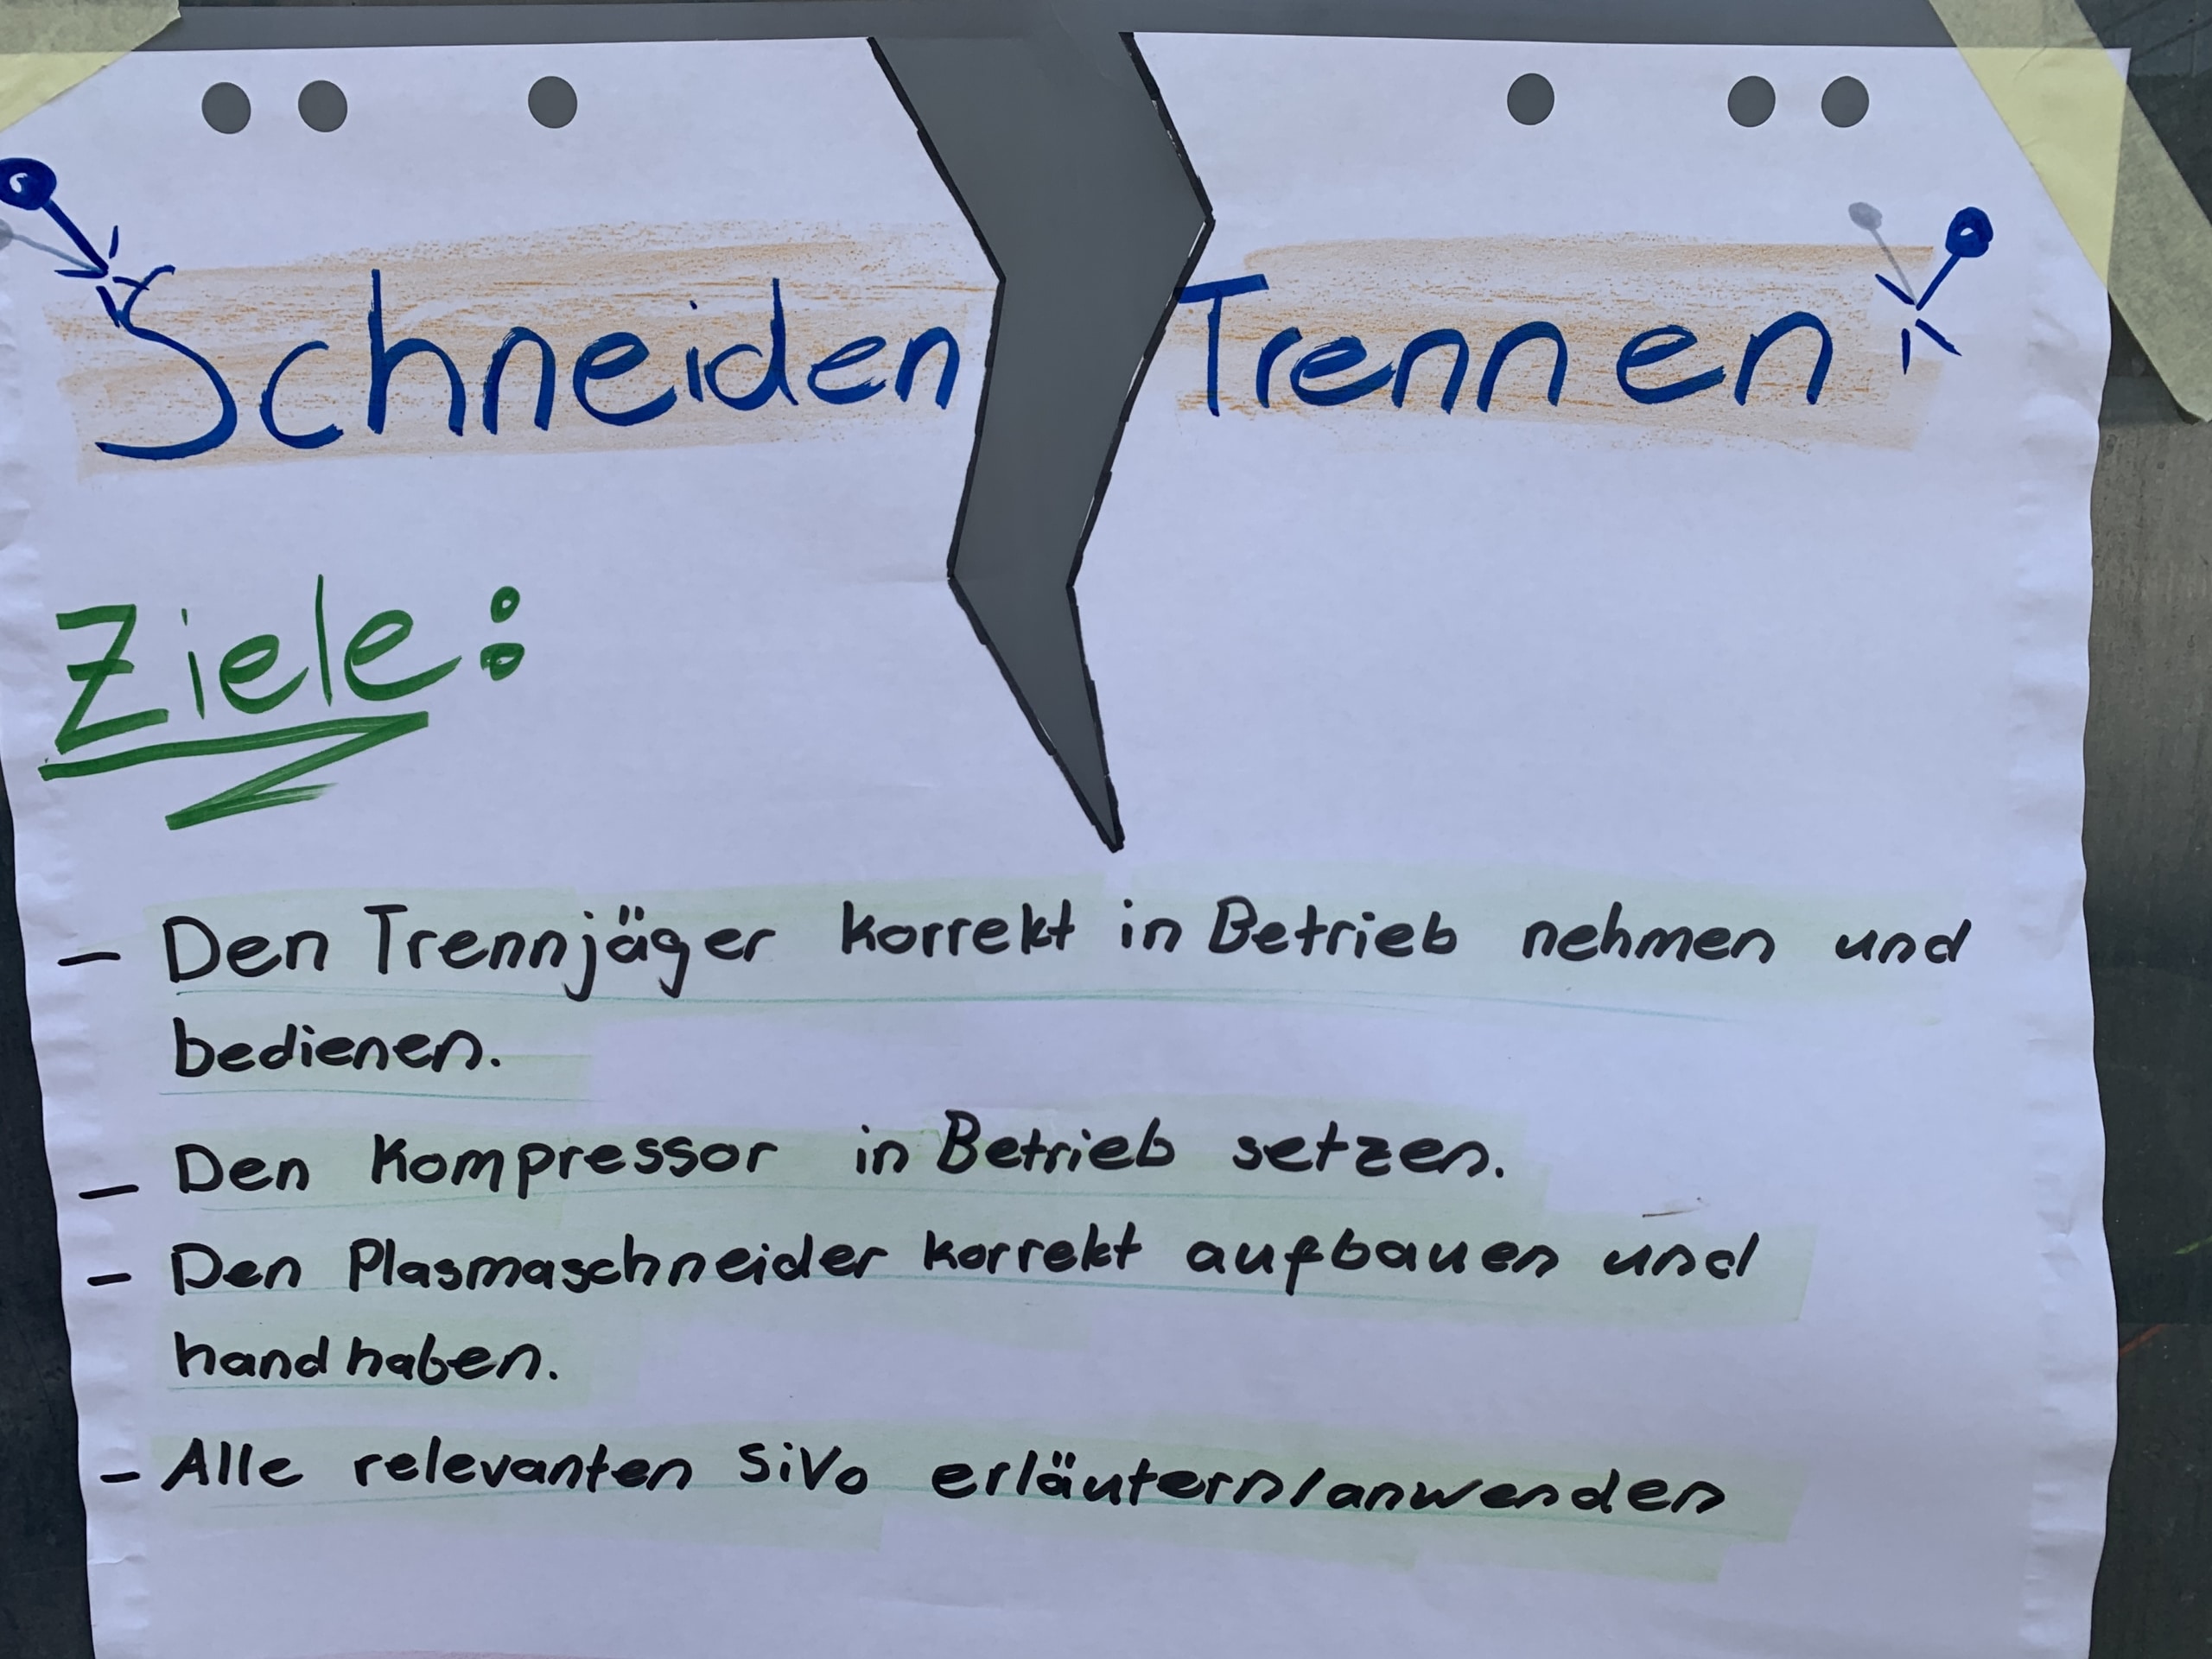 Schneiden Trennen
Ziele:
- Den Trennjäger korrekt in Betrieb nehmen und
bedienen.
- Den Kompressor in Betrieb setzen.
- Den Plasmaschneider korrekt aufbauen und
handhaben.
- Alle relevanten SiVo erläutern/anwenden